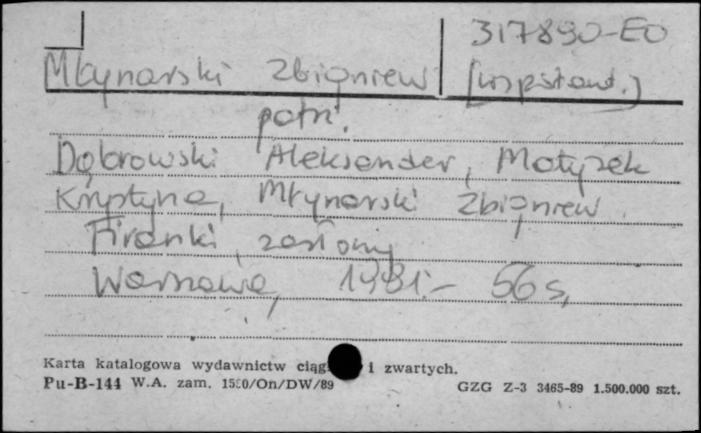 317890-EO
Młynarski Zbigniew [współaut.]
patrz:
Dąbrowski Aleksander, Matysek
Krystyna, Młynarski Zbigniew
Firanki, zasłony
Warszawa, 1981.- 56 s.
Karta katalogowa wydawnictw ciągł i zwartych.
Pu-B-144 W.A. zam. 1550/On/DW/89 GZG Z-3 3465-89 1.500.000 szt.